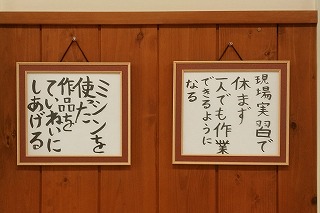 現場実習で
休まず
一人でも作業
できるように
なる
ミシンを
使った
作品を
ていねいに
しあげる